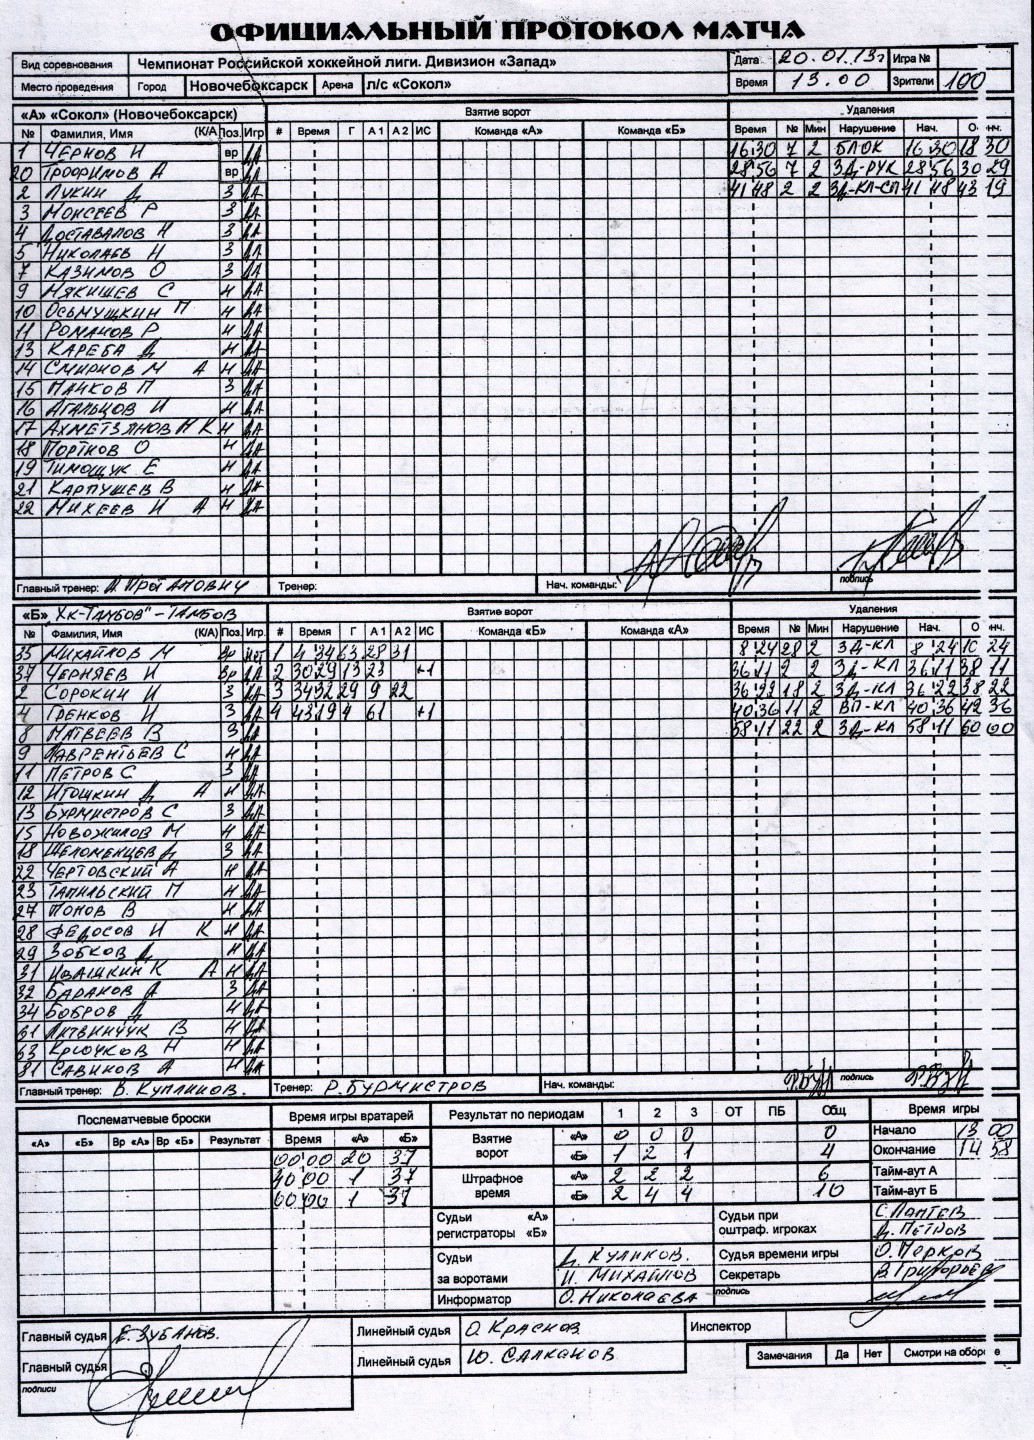 ОФИЦИАЛЬНЫЙ ПРОТОКОЛ МАТЧА
Вид соревнования Чемпионат Российской хоккейной лиги. Дивизион «Запад» Дата 20.01.13г Игра №
Место проведения Город Новочебоксарск Арена л/с «Сокол» Время 13.00 Зрители 100
«А» «Сокол» (Новочебоксарск) Взятие ворот Удаления
№ Фамилия, Имя (К/А) Поз. Игр # Время Г А1 А2 ИС Команда «А» Команда «Б» Время № Мин Нарушение Нач. Ок нч.
1 ЧЕРНОВ И вр ДА 16 30 7 2 БЛОК 16 30 18 30
20 ТРОФИМОВ А вр ДА 28 56 7 2 ЗД-РУК 28 56 30 29
2 ЛУКИН Д З ДА 41 48 2 2 ЗД-КЛ-СП 41 48 43 19
3 МОИСЕЕВ Р З ДА
4 ДОСТАВАЛОВ Н З ДА
5 НИКОЛАЕВ Н З ДА
7 КАЗИМОВ О З ДА
9 МЯКИШЕВ С Н ДА
10 ОСЬМУШКИН П Н ДА
11 РОМАНОВ Р Н ДА
13 КАРЕБА Д Н ДА
14 СМИРНОВ М А Н ДА
15 ПАНКОВ П З ДА
16 АГАЛЬЦОВ И Н ДА
17 АХМЕТЗЯНОВ Н К Н ДА
18 ПОРТНОВ О Н ДА
19 ТИМОЩУК Е Н ДА
21 КАРПУШЕВ В Н ДА
22 МИХЕЕВ И А Н ДА
Главный тренер: Тренер: Нач. команды: подпись
«Б» ХК-ТАМБОВ" - ТАМБОВ Взятие ворот Удаления
№ Фамилия, Имя (К/А) Поз. Игр. # Время Г А1 А2 ИС Команда «Б» Команда «А» Время № Мин Нарушение Нач. О нч.
35 МИХАЙЛОВ М Вр НЕТ 1 4 34 63 28 31 8 24 28 2 ЗД-КЛ 8 24 10 24
37 ЧЕРНЯЕВ И Вр ДА 2 30 29 13 23 +1 36 11 2 2 ЗД-КЛ 36 11 38 11
2 СОРОКИН И З ДА 3 34 32 29 9 22 36 22 18 2 ЗД-КЛ 36 22 38 22
4 ГРЕНКОВ И З ДА 4 43 19 4 61 +1 40 36 11 2 ВП-КЛ 40 36 42 36
8 МАТВЕЕВ В З ДА 58 11 22 2 ЗД-КЛ 58 11 60 00
9 ЛАВРЕНТЬЕВ С Н ДА
11 ПЕТРОВ С З ДА
12 ИТОШКИН Д А Н ДА
13 БУРМИСТРОВ С З ДА
15 НОВОЖИЛОВ М Н ДА
18 ШЕЛОМЕНЦЕВ Д З ДА
22 ЧЕРТОВСКИЙ А Н ДА
23 ТАПИЛЬСКИЙ П Н ДА
27 ПОПОВ В Н ДА
28 ФЕДОСОВ И К Н ДА
29 ЗОБКОВ Д Н ДА
31 ИВАШКИН К А Н ДА
32 БАРАНОВ А З ДА
34 БОБРОВ Д Н ДА
61 ЛИТВИНЧУК В Н ДА
63 КРЮЧКОВ Н Н ДА
81 САВИНОВ А Н ДА
Главный тренер: В. КУПЛИНОВ. Тренер: Р. БУРМИСТРОВ Нач. команды: подпись
Послематчевые броски Время игры вратарей Результат по периодам 1 2 3 ОТ ПБ Общ Время игры
«А» «Б» Вр «А» Вр «Б» Результат Время «А» «Б» Взятие ворот «А» 0 0 0 0 Начало 13 00
00 00 20 37 «Б» 1 2 1 4 Окончание 14 58
40 00 1 37 Штрафное время «А» 2 2 2 6 Тайм-аут А
60 00 1 37 «Б» 2 4 4 10 Тайм-аут Б
Судьи регистраторы «А» «Б» Судьи при оштраф. игроках С. ЛАПТЕВ
Д. ПЕТРОВ
Судьи Д. КУЛИКОВ. Судья времени игры О. ПЕРКОВ
за воротами И. МИХАЙЛОВ Секретарь В. ГРИГОРЬЕВ
Информатор О. НИКОЛАЕВА подпись
Главный судья Е. ЗУБАНОВ. Линейный судья О. КРАСНОВ Инспектор
Главный судья Линейный судья Ю. САЛКАНОВ Замечания Да Нет Смотри на оборо е
подписи